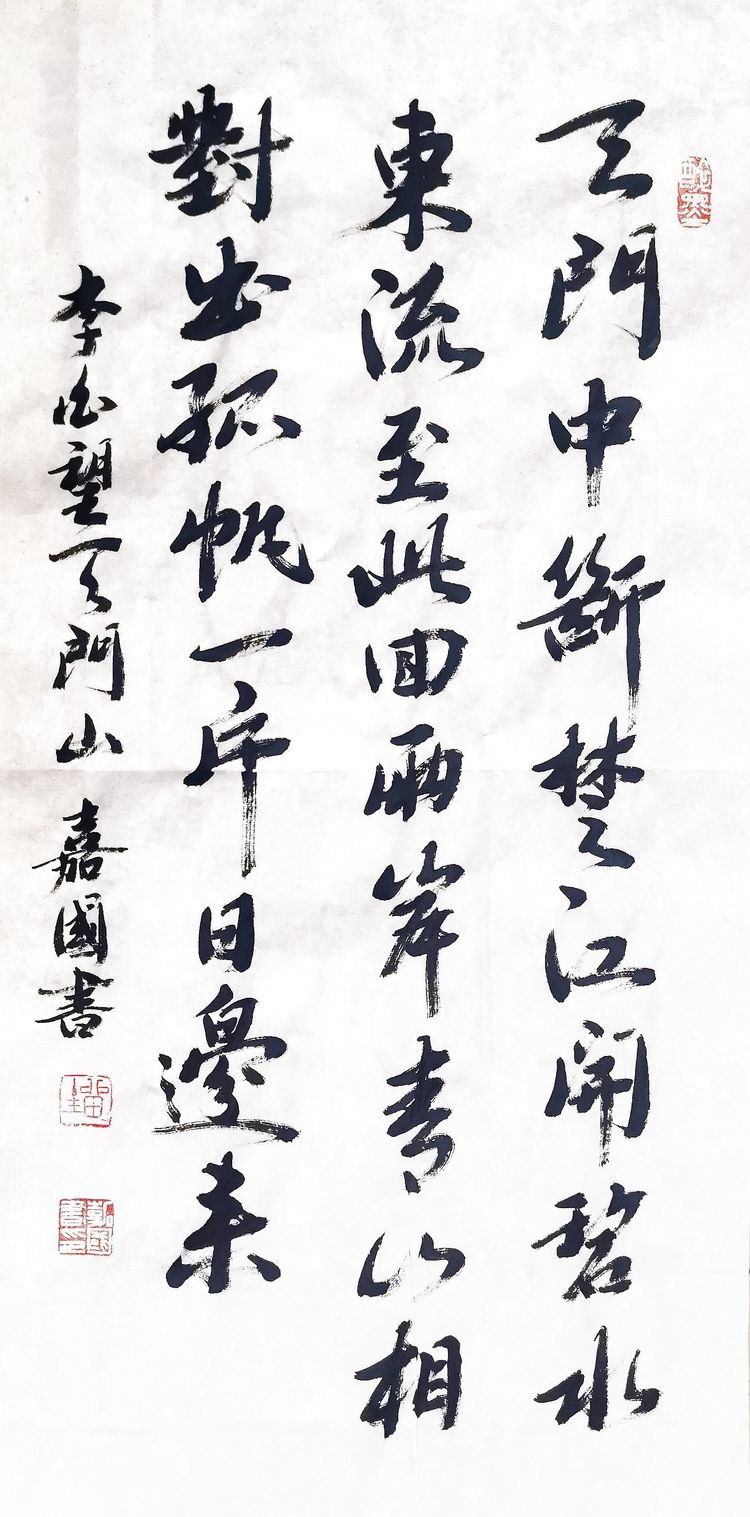 天門中斷楚江開碧水
東流至此回兩岸青山相
對出孤帆一片日邊來
李白望天門山 嘉國書